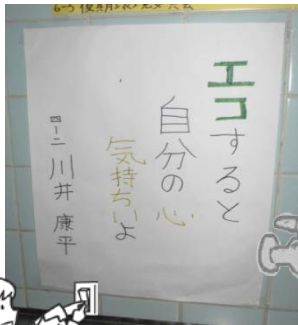 エコすると
自分の心
気持ちいよ
四ー二 川井 康平